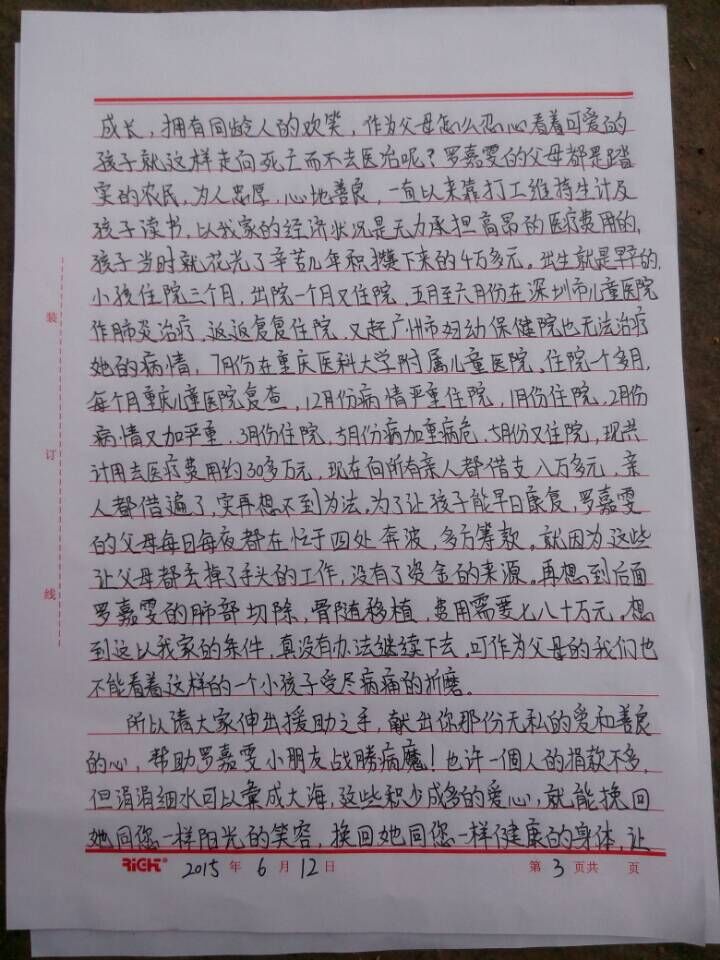 成长，拥有同龄人的欢笑，作为父母怎么忍心看着可爱的
孩子就这样走向死亡而不去医治呢？罗嘉雯的父母都是踏
实的农民，为人忠厚，心地善良，一直以来靠打工维持生计及
孩子读书，以我家的经济状况是无力承担高昂的医疗费用的，
孩子当时就花光了辛苦几年积攒下来的4万多元。出生就是早产的，
小孩住院三个月，出院一个月又住院，五月至六月份在深圳市儿童医院
作肺炎治疗，返返复复住院，又赶广州市妇幼保健院也无法治疗
她的病情，7月份在重庆医科大学附属儿童医院、住院一个多月，
每个月重庆儿童医院复查，12月份病情严重住院，1月份住院，2月份
病情又加严重，3月份住院，5月份病加重病危，5月份又住院，现共
计用去医疗费用约30多万元，现在向所有亲人都借支八万多元，亲
人都借遍了，实再想不到为法，为了让孩子能早日康复，罗嘉雯
的父母每日每夜都在忙于四处奔波，多方筹款，就因为这些
让父母都丢掉了手头的工作，没有了资金的来源。再想到后面
罗嘉雯的肺部切除，骨随移植，费用需要七八十万元。想
到这以我家的条件，真没有办法继续下去，可作为父母的我们也
不能看着这样的一个小孩子受尽病痛的折磨。
所以请大家伸出援助之手，献出你那份无私的爱和善良
的心，帮助罗嘉雯小朋友战胜病魔！也许一個人的捐款不多，
但涓涓细水可以彙成大海，这些积少成多的爱心，就能挽回
她同您一样阳光的笑容，换回她同您一样健康的身体，让
装
订
线
RiCHT® 2015 年 6 月 12 日 第 3 页共 页